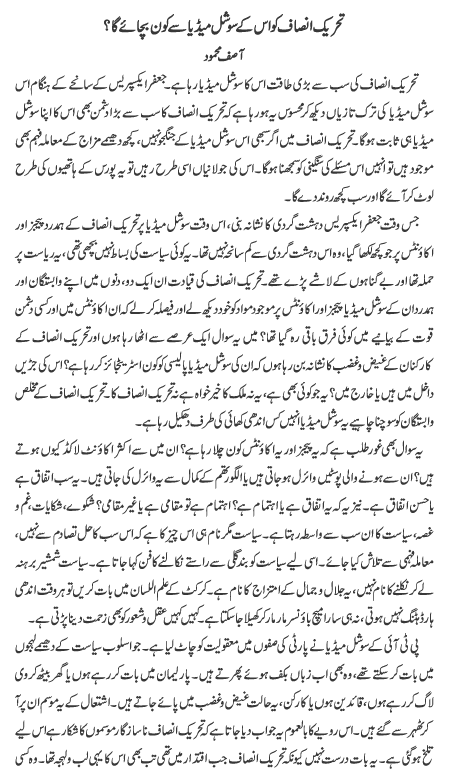 تحریک انصاف کو اس کے سوشل میڈیا سے کون بچائے گا؟
آصف محمود
تحریک انصاف کی سب سے بڑی طاقت اس کا سوشل میڈیا رہا ہے۔ جعفر ایکسپریس کے سانحے کے ہنگام اس
سوشل میڈیا کی ترک تازیاں دیکھ کر محسوس یہ ہو رہا ہے کہ تحریک انصاف کا سب سے بڑا دشمن بھی اس کا اپنا سوشل
میڈیا ہی ثابت ہو گا۔ تحریک انصاف میں اگر بھی اس سوشل میڈیا کے جنگجو نہیں، کچھ دھیمے مزاج کے معاملہ فہم بھی
موجود ہیں تو انہیں اس مسئلے کی سنگینی کو سمجھنا ہو گا۔ اس کی جولانیاں اسی طرح رہیں تو یہ پورس کے ہاتھیوں کی طرح
لوٹ کر آئے گا اور سب کچھ روند دے گا۔
جس وقت جعفر ایکسپریس دہشت گردی کا نشانہ بنی، اس وقت سوشل میڈیا پر تحریک انصاف کے ہمدرد پیجز اور
اکاؤنٹس پر جو کچھ لکھا گیا، وہ اس دہشت گردی سے کم سانحہ نہیں تھا۔ یہ کوئی سیاست کی بساط نہیں بچھی تھی، یہ ریاست پر
حملہ تھا اور بے گناہوں کے لاشے پڑے تھے۔ تحریک انصاف کی قیادت ان ایک دو، دنوں میں اپنے وابستگان اور
ہمدردان کے سوشل میڈیا پیجز اور اکاؤنٹس پر موجود مواد کو خود دیکھ لے اور فیصلہ کر لے کہ ان اکاؤنٹس میں اور کسی دشمن
قوت کے بیانیے میں کوئی فرق باقی رہ گیا تھا؟ میں یہ سوال ایک عرصے سے اٹھا رہا ہوں اور تحریک انصاف کے
کارکنان کے غیض و غضب کا نشانہ بن رہا ہوں کہ ان کی سوشل میڈیا پالیسی کو کون اسٹریٹیجائز کر رہا ہے؟ اس کی جڑیں
داخل میں ہیں یا خارج میں؟ یہ جو کوئی بھی ہے، یہ نہ ملک کا خیر خواہ ہے نہ تحریک انصاف کا۔ تحریک انصاف کے مخلص
وابستگان کو سوچنا چاہیے یہ سوشل میڈیا انہیں کس اندھی کھائی کی طرف دھکیل رہا ہے۔
یہ سوال بھی غور طلب ہے کہ یہ پیجز اور یہ اکاؤنٹس کون چلا رہا ہے؟ ان میں سے اکثر اکاؤنٹ لاکڈ کیوں ہوتے
ہیں؟ ان سے ہونے والی پوسٹیں وائرل ہو جاتی ہیں یا الگورتھم کے کمال سے یہ وائرل کی جاتی ہیں۔ یہ سب اتفاق ہے
یا حسن اتفاق ہے۔ نیز یہ کہ یہ اتفاق ہے یا اہتمام ہے؟ اہتمام ہے تو مقامی ہے یا غیر مقامی؟ شکوے، شکایات، غم و
غصہ، سیاست کا ان سب سے واسطہ رہتا ہے۔ سیاست مگر نام ہی اس چیز کا ہے کہ اس سب کا حل تصادم سے نہیں،
معاملہ فہمی سے تلاش کیا جائے۔ اسی لیے سیاست کو بند گلی سے راستے نکالنے کا فن کہا جاتا ہے۔ سیاست شمشیر برہنہ
لے کر نکلنے کا نام نہیں، یہ جلال و جمال کے امتزاج کا نام ہے۔ کرکٹ کے علم اللسان میں بات کریں تو ہر وقت اندھی
ہارڈ ہٹنگ نہیں ہوتی، نہ ہی سارا میچ باؤنسر مار مار کر کھیلا جا سکتا ہے۔ کہیں کہیں عقل و شعور کو بھی زحمت دینا پڑتی ہے۔
پی ٹی آئی کے سوشل میڈیا نے پارٹی کی صفوں میں معقولیت کو چاٹ لیا ہے۔ جو اسلوب سیاست کے دھیمے لہجوں
میں بات کر سکتے تھے، وہ بھی اب زباں بکف ہوئے پھرتے ہیں۔ پارلیمان میں بات کر رہے ہوں یا گھر بیٹھ کر وی
لاگ کر رہے ہوں، قائدین ہوں یا کارکن، یہ حالت غیض و غضب میں پائے جاتے ہیں۔ اشتعال کے یہ موسم ان پر آ
کر ٹھہر سے گئے ہیں۔ اس رویے کا بالعموم یہ جواب دیا جاتا ہے کہ تحریک انصاف ناسازگار موسموں کا شکار ہے اس لیے
تلخ ہو گئی ہے۔ یہ بات درست نہیں کیونکہ تحریک انصاف جب اقتدار میں تھی تب بھی اس کا یہی لب و لہجہ تھا۔ وہ کسی